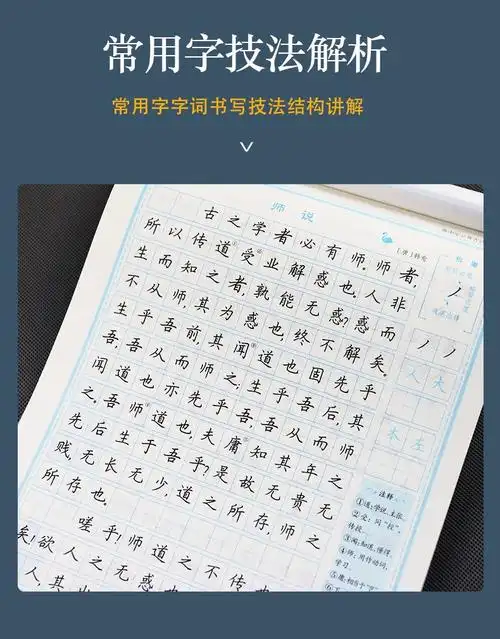 常用字技法解析
常用字字词书写技法结构讲解
师说
[唐]韩愈
古之学者必有师。师者,
所以传道受业解惑也。人非
生而知之者,孰能无惑?惑而
不从师,其为惑也,终不解矣。
生乎吾前,其闻道也固先乎
吾,吾从而师之;生乎吾后,其
闻道也亦先乎吾,吾从而师
之。吾师道也,夫庸知其年之
先后生于吾乎?是故无贵无
贱,无长无少,道之所存,师之
所存也。
嗟乎!师道之不传也
矣!欲人之无惑也
人,其出
人大
本生
注释:
①道:学说,主张
②受:同“授”,
传授。
③闻:知道,懂得。
④师:用作动词,
学习。